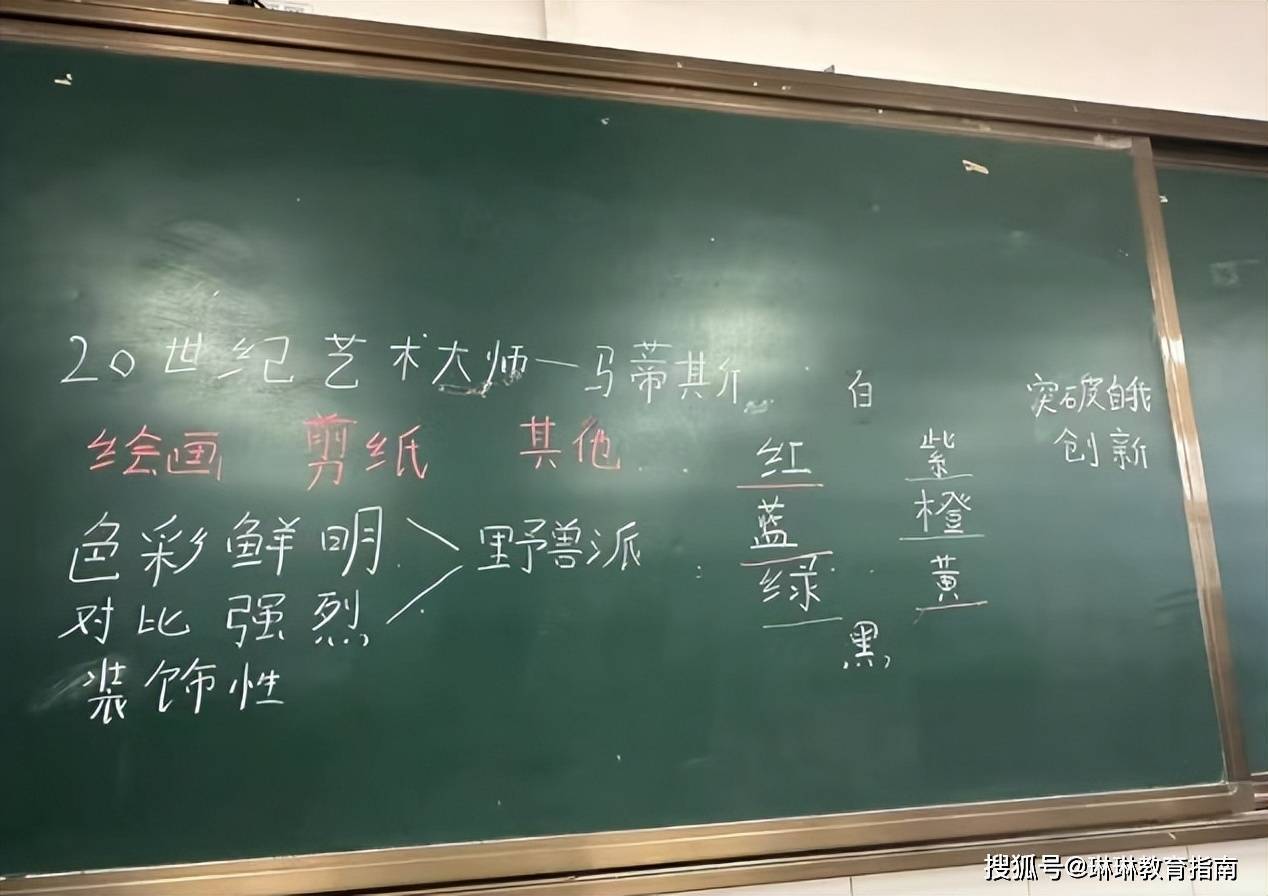 20世纪艺术大师—马蒂斯
绘画 剪纸 其他
色彩鲜明
对比强烈
野兽派
装饰性
白
红
蓝
绿
紫
橙
黄
黑
突破自我
创新
搜狐号@琳琳教育指南